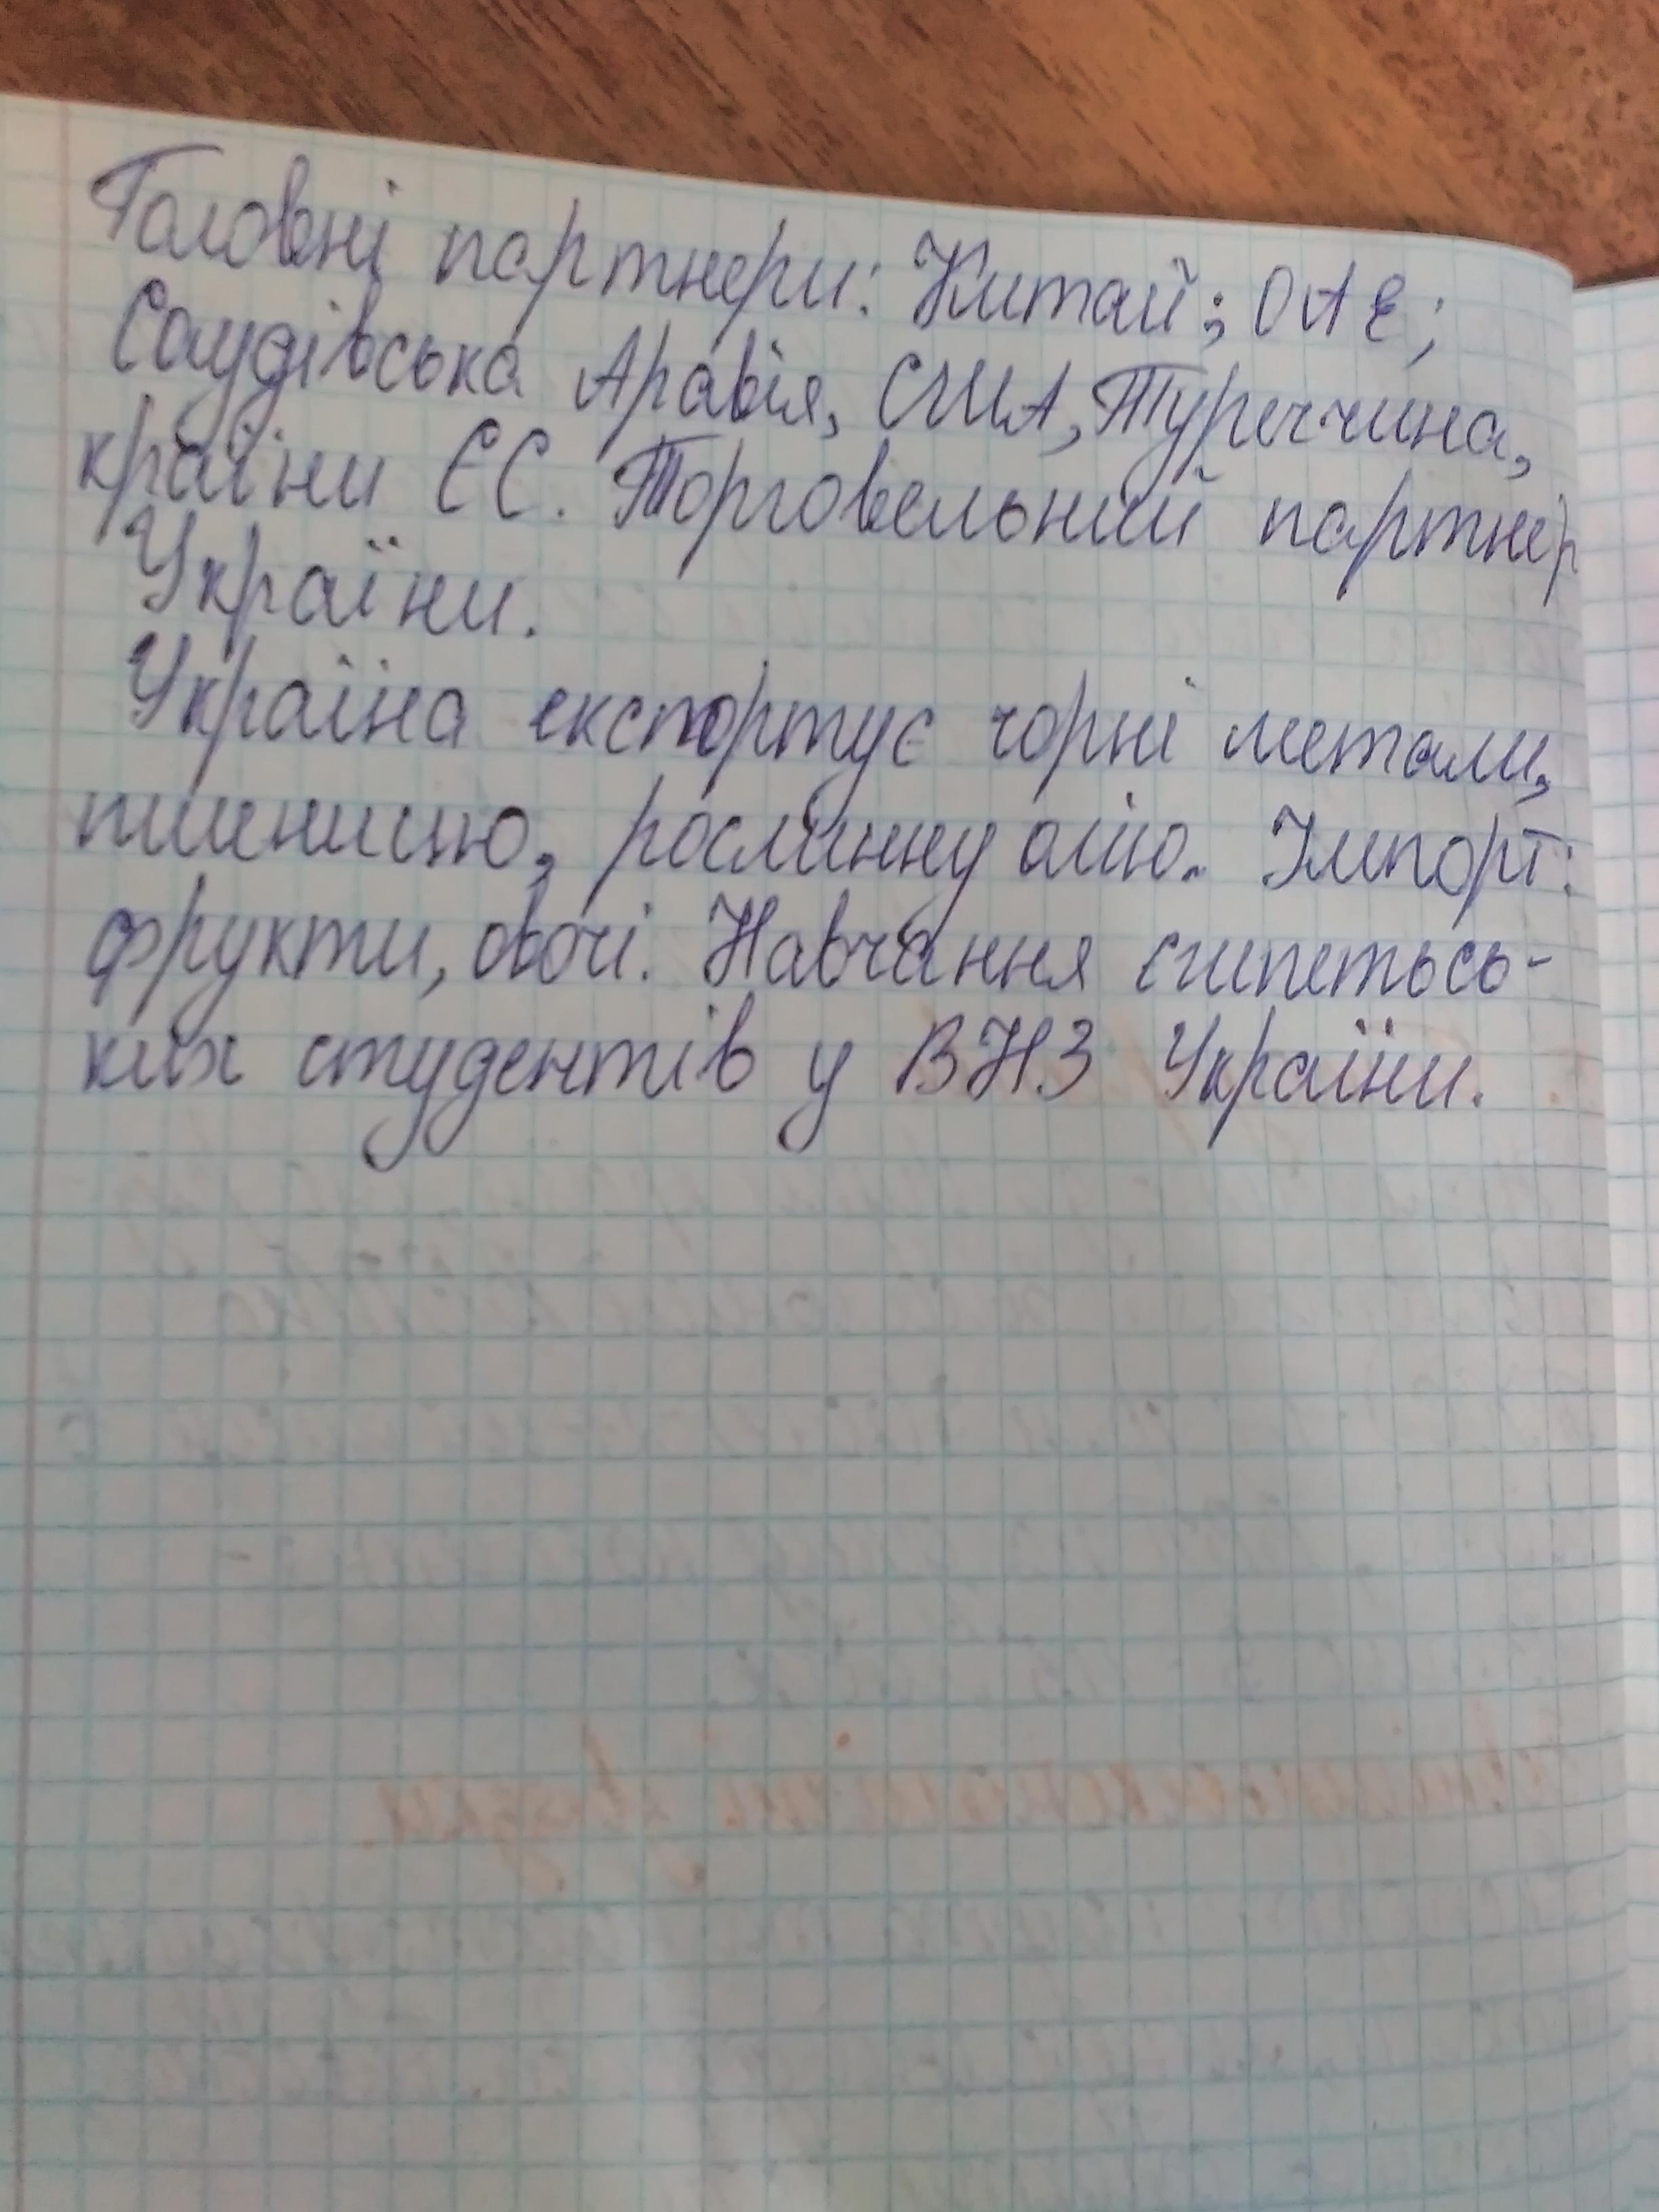 Головні партнери: Китай; ОАЕ;
Саудівська Аравія, США, Туреччина,
країни ЄС. Торговельний партнер
України.
Україна експортує чорні метали,
пшеницю, рослинну олію. Імпорт:
фрукти, овочі. Навчання єгипетьсь-
ких студентів у ВНЗ України.